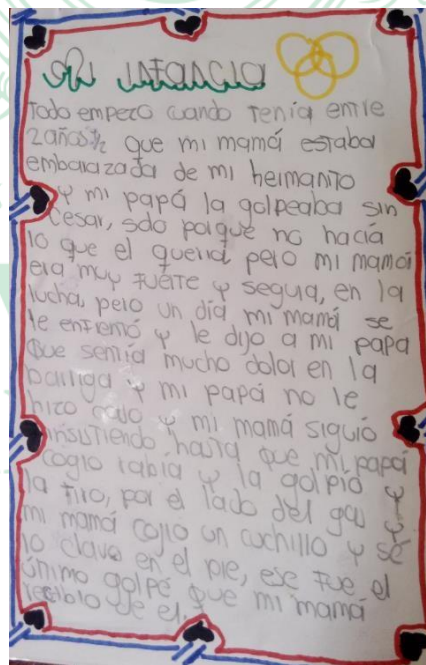 Mi infancia
Todo empezo cuando tenía entre
2años ½ que mi mamá estaba
embarazada de mi hermanito
y mi papá la golpeaba sin
cesar, solo porque no hacía
lo que el queria pero mi mamá
era muy fuerte y seguia, en la
lucha, pero un día mi mamá se
le enfermó y le dijo a mi papa
que sentía mucho dolor en la
barriga y mi papá no le
hizo caso y mi mamá siguió
insistiendo hasta que mi papá
cogio rabia y la golpió y
la tiro, por el lado del gas y
mi mamá cojio un cuchillo y se
lo clavo en el pie, ese fue el
último golpe que mi mamá
recibio de el.